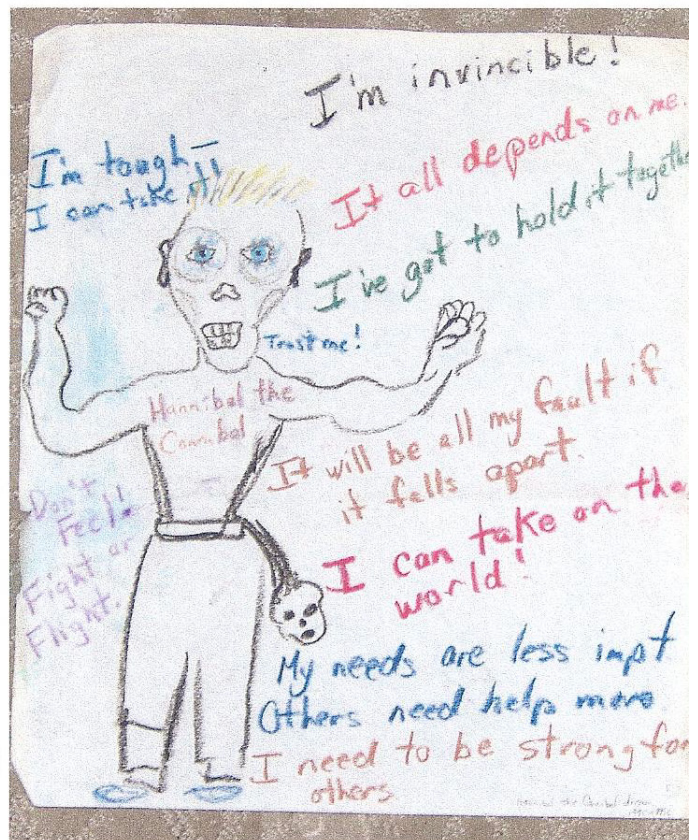 I'm invincible!
I'm tough–
I can take it!
It all depends on me.
I've got to hold it together
Trust me!
Hannibal the
Cannibal
It will be all my fault if
it falls apart.
Don't
Feel!
Fight or
Flight.
I can take on the
world!
My needs are less impt
Others need help more
I need to be strong for
others